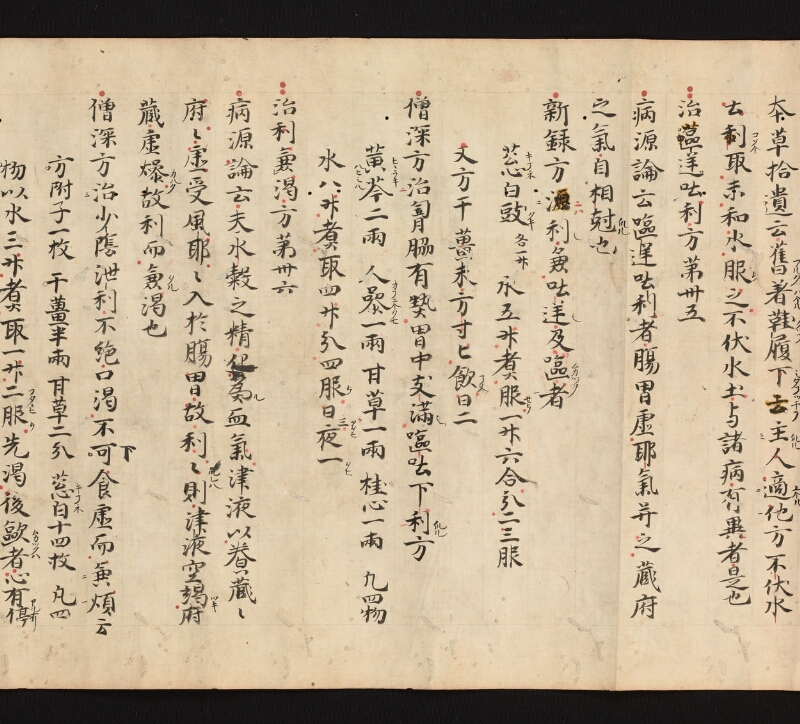 本草拾遺云舊著鞋履下去主人適他方不伏水
土刮取末和水服之不伏水土与諸病有異者是也
治嘔逆吐利方第卅五
病源論云嘔逆吐利者腸胃虛耶氣并之藏府
之氣自相尅也
新録方 利兼吐逆及嘔者
葱白豉各一升 水五升煮服一升六合分二三服
又方干薑末方寸匕飲日二
僧深方治胷脇有熱胃中支滿嘔吐下利方
黄芩二兩 人參一兩 甘草一兩 桂心一兩 凡四物
水八升煮取四升分四服日三夜一
治利兼渴方第卅六
病源論云夫水穀之精化爲血氣津液以養藏〻
府〻虛受風耶〻入於腸胃故利〻則津液空竭府
藏虛燥故利而兼渴也
僧深方治少陰泄利不絶口渴不可下食虛而兼煩云
方附子一枚 干薑半兩 甘草二分 葱白十四枚 凡四
物以水三升煮取一升二服先渴後歐者心有停